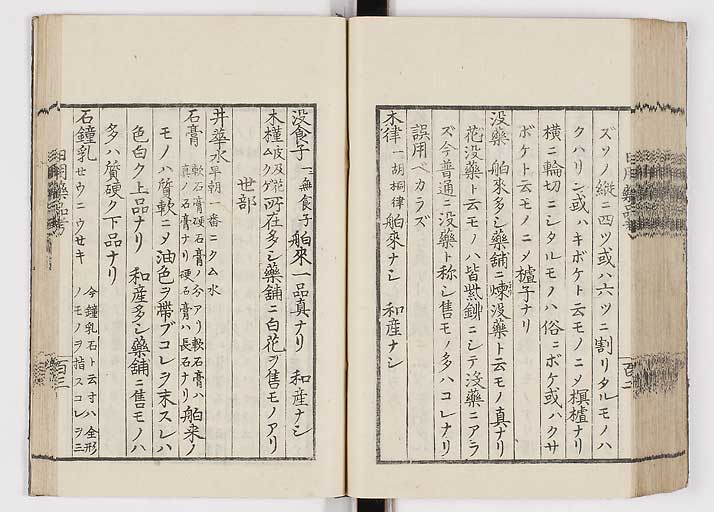 ズツノ縦ニ四ツ或ハ六ツニ割リタルモノハ
クハリン或ハキボケト云モノニメ榠樝ナリ
横ニ輪切ニシタルモノハ俗ニボケ或ハクサ
ボケト云モノニメ樝子ナリ
没藥 舶來多シ藥舗ニ煉没藥ト云モノ真ナリ
花没藥ト云モノハ皆紫鉚ニシテ没藥ニアラ
ズ今普通ニ没藥ト称シ售モノ多ハコレナリ
誤用ベカラズ
木律 一胡桐律 舶來ナシ 和産ナシ
没食子 一無食子 舶來一品真ナリ 和産ナシ
木槿 皮及花 ムクゲ 所在多シ藥舗ニ白花ヲ售モノアリ
世部
井華水 早朝一番ニクム水
石膏 軟石膏硬石膏ノ分アリ軟石膏ハ
真ノ石膏ナリ硬石膏ハ長石ナリ 舶来ノ
モノハ質軟ニメ油色ヲ帶ブコレヲ末スレハ
色白ク上品ナリ 和産多シ藥舗ニ售モノハ
多ハ質硬ク下品ナリ
石鐘乳 セウニウサキ 今鐘乳石ト云寸ハ全形
ノモノヲ指スコレヲ三
日用藥品考
百二
日用藥品考
百三